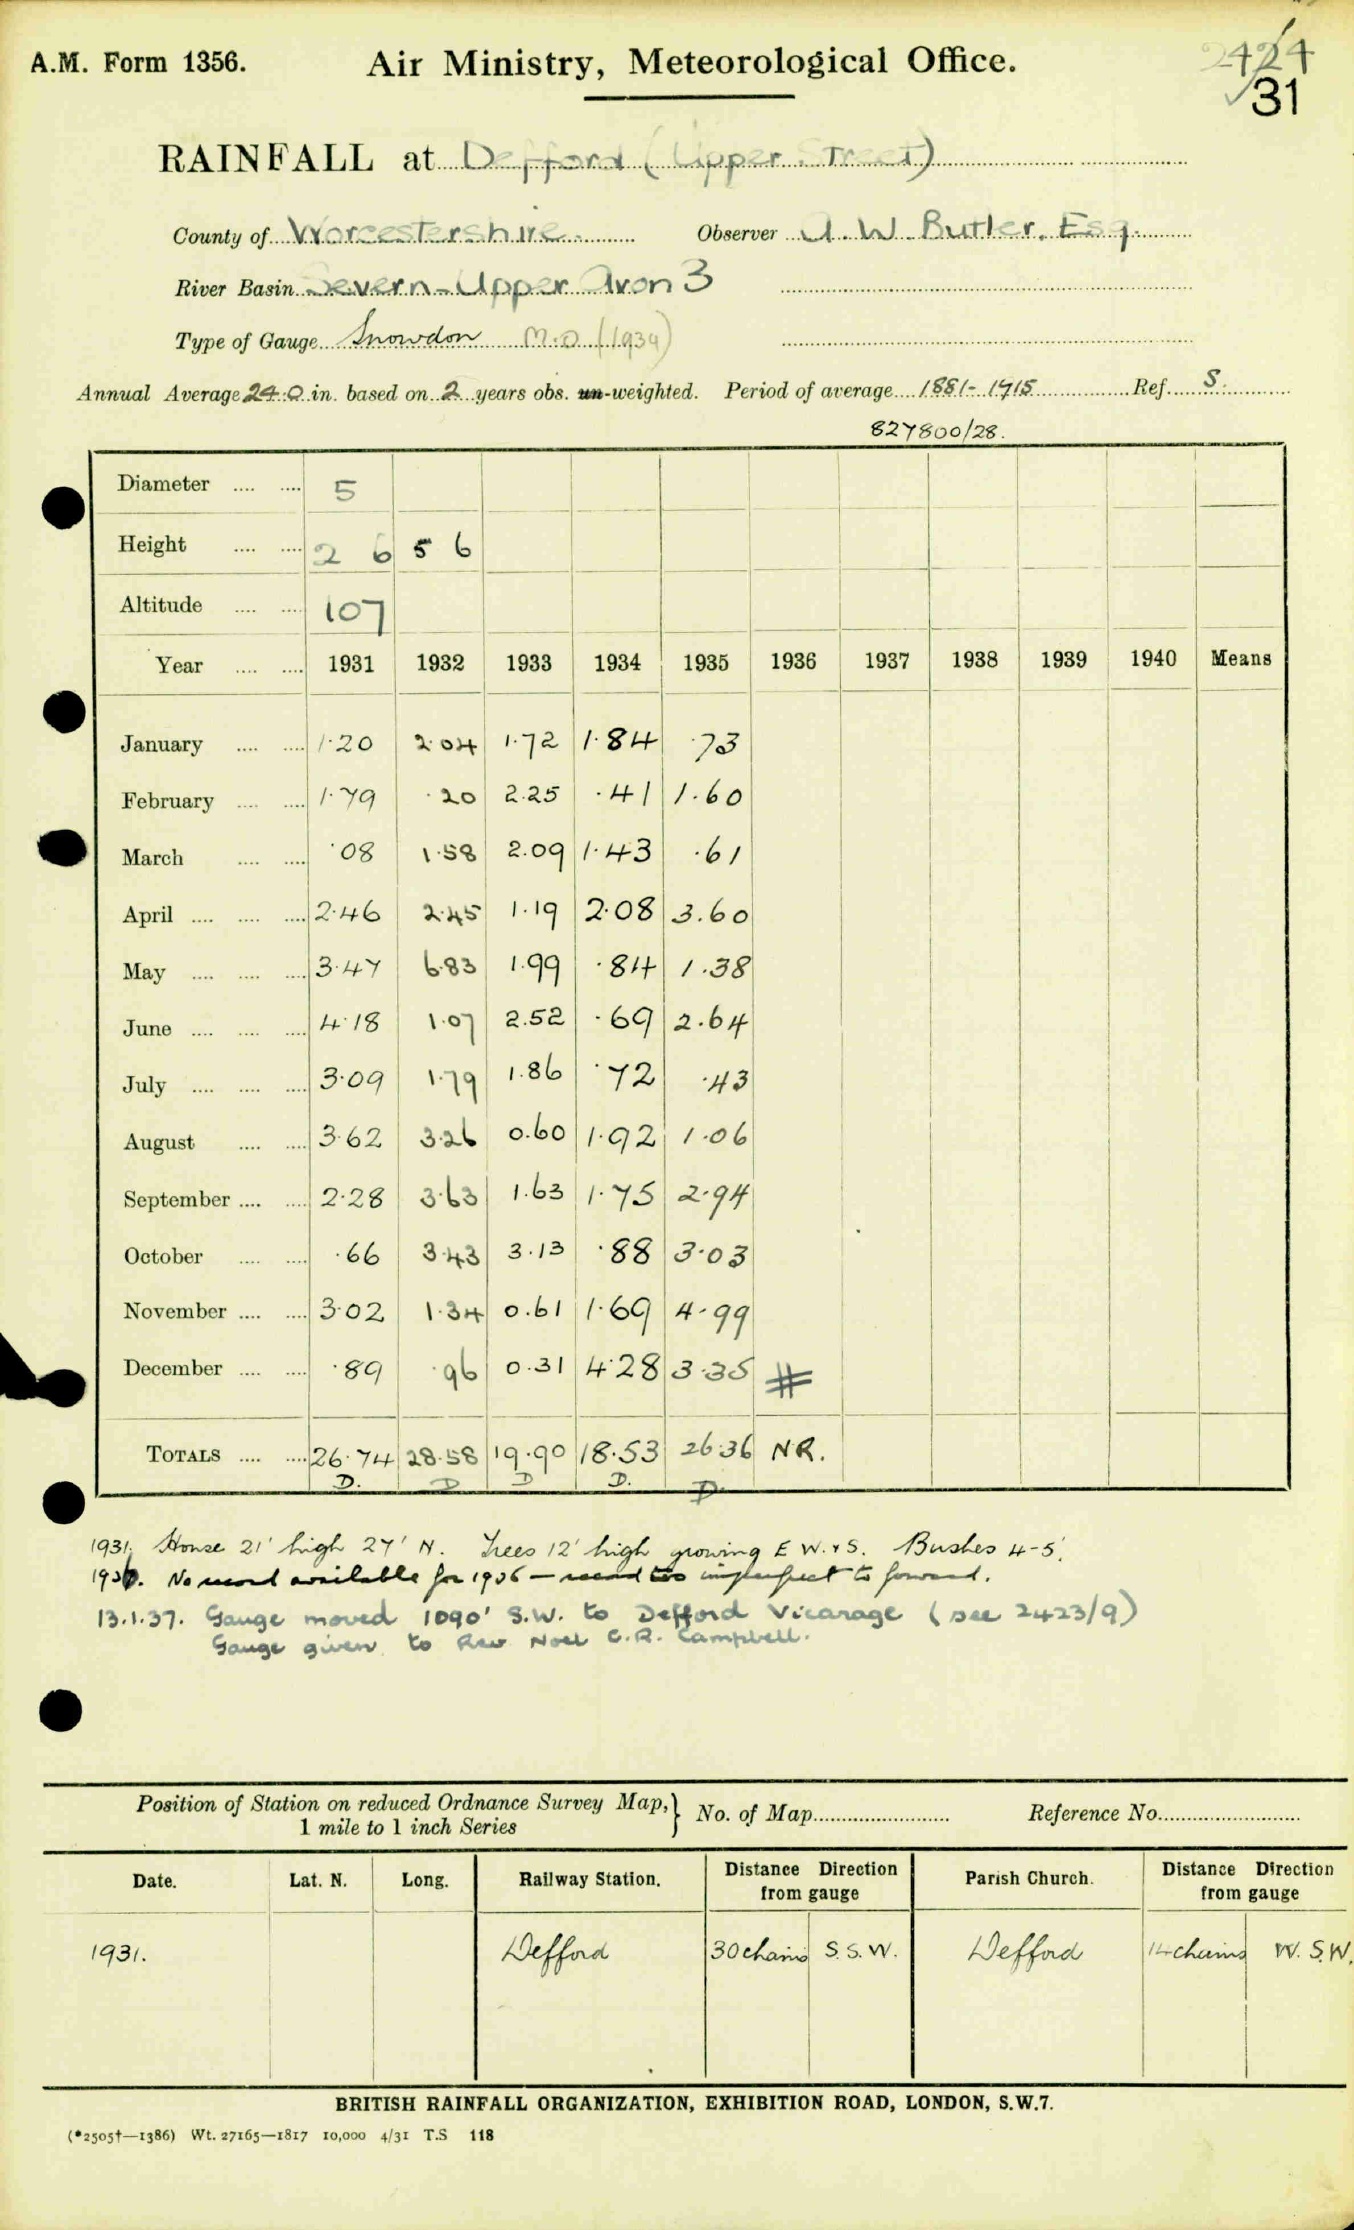 A.M. Form 1356.
Air Ministry, Meteorological Office.
2424
31
RAINFALL at Defford (Upper Street)
County of Worcestershire. Observer A. W. Butler, Esq.
River Basin Severn - Upper Avon 3
Type of Gauge Snowdon M.O (1934)
Annual Average 24.0 in. based on 2 years obs. un-weighted. Period of average 1881-1915 Ref. S.
827800/28.
Diameter .... .... 5
Height .... .... 2 6 5 6
Altitude .... .... 107
Year .... .... 1931 1932 1933 1934 1935 1936 1937 1938 1939 1940 Means
January .... .... 1.20 2.04 1.72 1.84 .73
February .... .... 1.79 .20 2.25 .41 1.60
March .... .... .08 1.58 2.09 1.43 .61
April .... .... .... 2.46 2.45 1.19 2.08 3.60
May .... .... .... 3.47 6.83 1.99 .84 1.38
June .... .... .... 4.18 1.07 2.52 .69 2.64
July .... .... .... 3.09 1.79 1.86 .72 .43
August .... .... 3.62 3.26 0.60 1.92 1.06
September .... .... 2.28 3.63 1.63 1.75 2.94
October .... .... .66 3.43 3.13 .88 3.03
November .... .... 3.02 1.34 0.61 1.69 4.99
December .... .... .89 .96 0.31 4.28 3.35 #
TOTALS .... .... 26.74 28.58 19.90 18.53 26.36 NR.
D. D D D. D.
1931. House 21' high 27' N. Trees 12' high growing E W. & S. Bushes 4-5'.
1936. No record available for 1936 — record too imperfect to forward.
13.1.37. Gauge moved 1090' S.W. to Defford Vicarage (see 2423/9)
Gauge given to Rev Noel C.R. Campbell.
Position of Station on reduced Ordnance Survey Map, } No. of Map Reference No.
1 mile to 1 inch Series
Date. Lat. N. Long. Railway Station. Distance Direction from gauge Parish Church. Distance Direction from gauge
1931. Defford 30 chains S. S. W. Defford 14 chains W. S. W.
BRITISH RAINFALL ORGANIZATION, EXHIBITION ROAD, LONDON, S.W.7.
(*2505†—1386) Wt. 27165—1817 10,000 4/31 T.S 118